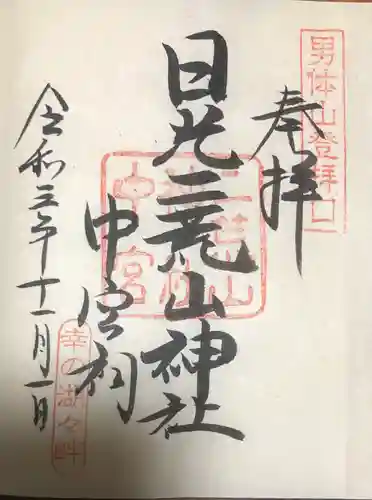 男体山登拝口
奉拝
日光二荒山神社
中宮祠
二荒山
神社
中宮
令和三年十一月一日
幸の湖々畔